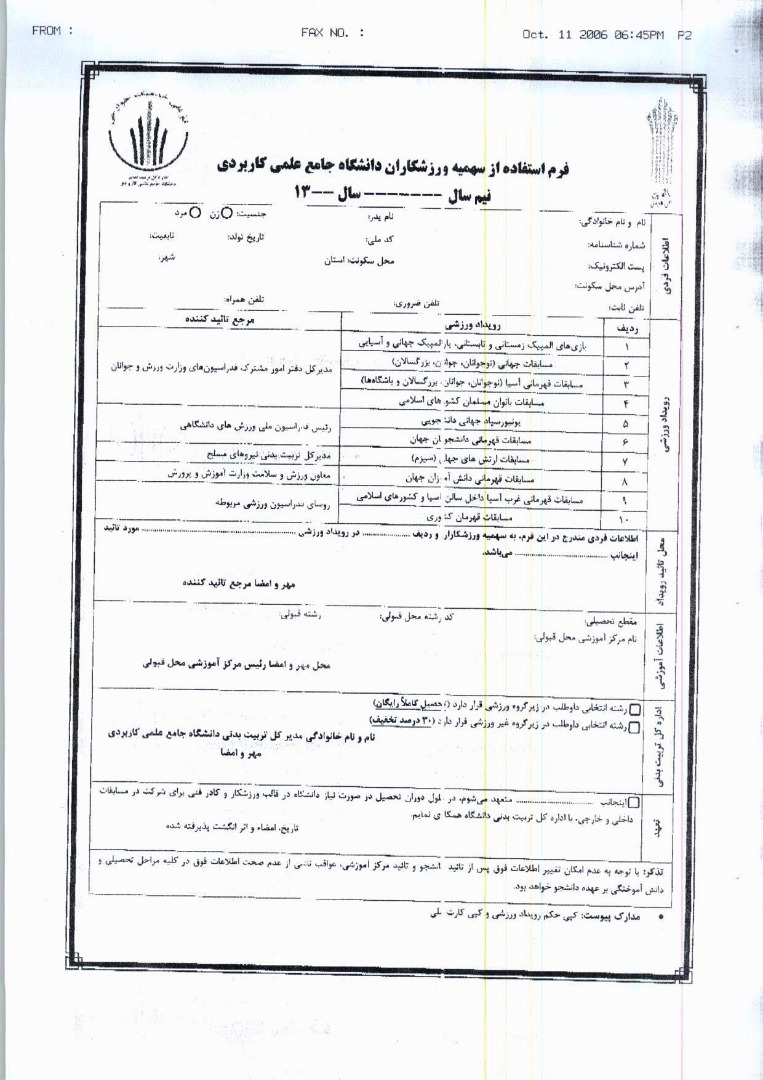 FROM :
FAX NO. :
Oct. 11 2006 06:45PM P2
فرم استفاده از سهمیه ورزشکاران دانشگاه جامع علمی کاربردی
نیم سال ------- سال ---۱۳
اطلاعات فردی
نام و نام خانوادگی: نام پدر: جنسیت: زن مرد
شماره شناسنامه: کد ملی: تاریخ تولد: تابعیت:
پست الکترونیک: محل سکونت: استان شهر:
آدرس محل سکونت:
تلفن ثابت: تلفن ضروری: تلفن همراه:
رویداد ورزشی
ردیف رویداد ورزشی مرجع تائید کننده
۱ بازی‌های المپیک زمستانی و تابستانی، پارالمپیک جهانی و آسیایی
۲ مسابقات جهانی (نوجوانان، جوانان، بزرگسالان)
مدیرکل دفتر امور مشترک فدراسیون‌های وزارت ورزش و جوانان
۳ مسابقات قهرمانی آسیا (نوجوانان، جوانان، بزرگسالان و باشگاه‌ها)
۴ مسابقات بانوان مسلمان کشورهای اسلامی
۵ یونیورسیاد جهانی دانشجویی
رئیس فدراسیون ملی ورزش های دانشگاهی
۶ مسابقات قهرمانی دانشجویان جهان
۷ مسابقات ارتش های جهان (سیزم) مدیرکل تربیت بدنی نیروهای مسلح
۸ مسابقات قهرمانی دانش آموزان جهان معاون ورزش و سلامت وزارت آموزش و پرورش
۹ مسابقات قهرمانی غرب آسیا داخل سالن آسیا و کشورهای اسلامی
روسای فدراسیون ورزشی مربوطه
۱۰ مسابقات قهرمان کشوری
محل تائید رویداد
اطلاعات فردی مندرج در این فرم، به سهمیه ورزشکاران و ردیف .............. در رویداد ورزشی ................................ مورد تائید
اینجانب .......................... می‌باشد.
مهر و امضا مرجع تائید کننده
اطلاعات آموزشی
مقطع تحصیلی: کد رشته محل قبولی: رشته قبولی:
نام مرکز آموزشی محل قبولی:
محل مهر و امضا رئیس مرکز آموزشی محل قبولی
اداره کل تربیت بدنی
رشته انتخابی داوطلب در زیرگروه ورزشی قرار دارد (تحصیل کاملاً رایگان)
رشته انتخابی داوطلب در زیرگروه غیر ورزشی قرار دارد (۳۰ درصد تخفیف)
نام و نام خانوادگی مدیر کل تربیت بدنی دانشگاه جامع علمی کاربردی
مهر و امضا
تعهد
اینجانب ........................ متعهد می‌شوم، در طول دوران تحصیل در صورت نیاز دانشگاه در قالب ورزشکار و کادر فنی برای شرکت در مسابقات
داخلی و خارجی، با اداره کل تربیت بدنی دانشگاه همکاری نمایم.
تاریخ، امضاء و اثر انگشت پذیرفته شده
تذکر: با توجه به عدم امکان تغییر اطلاعات فوق پس از تائید دانشجو و تائید مرکز آموزشی، عواقب ناشی از عدم صحت اطلاعات فوق در کلیه مراحل تحصیلی و
دانش آموختگی بر عهده دانشجو خواهد بود.
• مدارک پیوست: کپی حکم رویداد ورزشی و کپی کارت ملی